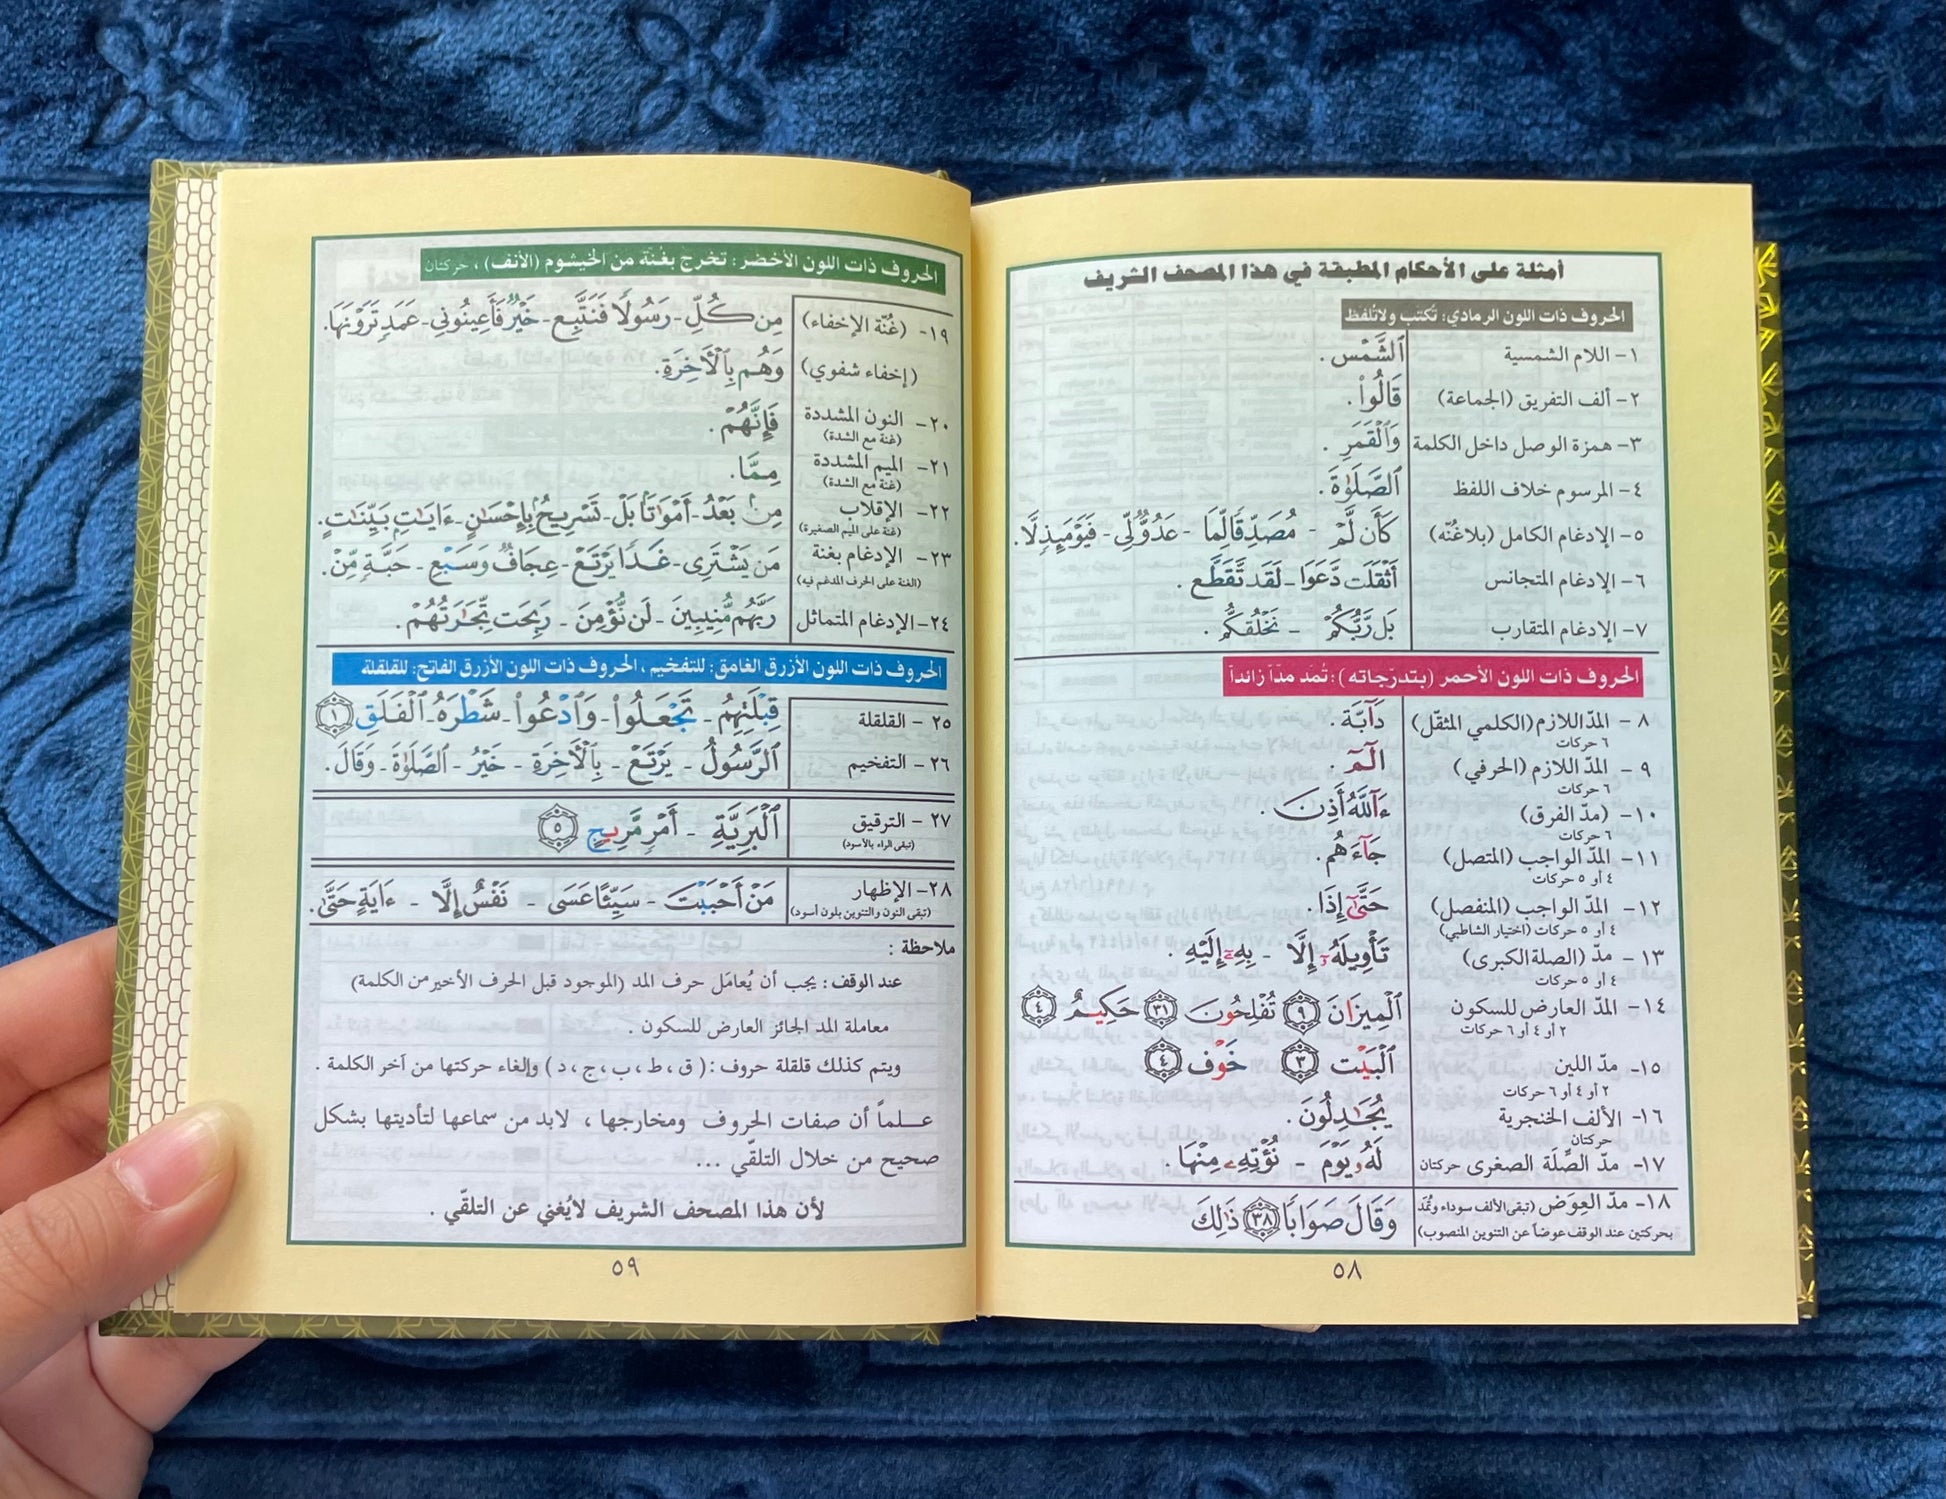 أمثلة على الأحكام المطبقة في هذا المصحف الشريف
الحروف ذات اللون الرمادي: تُكتب ولا تُلفظ
١- اللام الشمسية ٱلشَّمْسِ .
٢- ألف التفريق (الجماعة) قَالُوا۟ .
٣- همزة الوصل داخل الكلمة وَٱلْقَمَرِ .
٤- المرسوم خلاف اللفظ ٱلصَّلَوٰةَ .
٥- الإدغام الكامل (بلاغُنّه) كَأَن لَّمْ - مُصَدِّقًا لِّمَا - عَدُوٌّ لِّي - فَيَوْمَئِذٍ لَّا .
٦- الإدغام المتجانس أَثْقَلَت دَّعَوَا - لَقَد تَّقَطَّعَ .
٧- الإدغام المتقارب بَل رَّبُّكُمْ - نَخْلُقكُّم .
الحروف ذات اللون الأحمر (بتدرّجاته) : تُمَد مدّاً زائداً
٨ - المدّ اللازم (الكلمي المثقّل) دَآبَّة .
٦ حركات
٩ - المدّ اللازم (الحرفي) الٓمٓ .
٦ حركات
١٠- (مدّ الفرق) ءَآللَّهُ أَذِنَ .
٦ حركات
١١- المدّ الواجب (المتصل) جَآءَهُم .
٤ أو ٥ حركات
١٢- المدّ الواجب (المنفصل) حَتَّىٰٓ إِذَا .
٤ أو ٥ حركات (اختيار الشاطبي)
١٣- مدّ (الصلة الكبرى) تَأْوِيلَهُۥٓ إِلَّا - بِهِۦٓ إِلَيْهِ .
٤ أو ٥ حركات
١٤- المدّ العارض للسكون ٱلْمِيزَانَ ٩ تُفْلِحُونَ ٣١ حَكِيمٌ ٤
٢ أو ٤ أو ٦ حركات
١٥- مدّ اللين ٱلْبَيْتِ ٣ خَوْفٍ ٤
٢ أو ٤ أو ٦ حركات
١٦- الألف الخنجرية يُجَٰدِلُونَ .
حركتان
١٧- مدّ الصِّلَة الصغرى حركتان لَهُۥ يَوْمَ - نُؤْتِهِۦ مِنْهَا .
١٨- مدّ العِوَض (تبقى الألف سوداء وتُمَدّ وَقَالَ صَوَابًا ٣٨ ذَٰلِكَ
بحركتين عند الوقف عوضاً عن التنوين المنصوب)
٥٨
الحروف ذات اللون الأخضر : تخرج بغُنّة من الخيشوم (الأنف) ، حركتان
١٩- (غُنّة الإخفاء) مِن كُلِّ - رَسُولًا فَنَتَّبِعَ - خَيْرٌ فَأَعِينُونِي - عَمَدٍ تَرَوْنَهَا .
(إخفاء شفوي) وَهُم بِٱلْأَخِرَةِ .
٢٠- النون المشددة فَإِنَّهُمْ .
(غنة مع الشدة)
٢١- الميم المشددة مِمَّا .
(غنة مع الشدة)
٢٢- الإقلاب مِنۢ بَعْدُ - أَمْوَٰتًا بَلْ - تَسْرِيحٌۢ بِإِحْسَٰنٍ - ءَايَٰتٍۭ بَيِّنَٰتٍ .
(غنة على الميم الصغيرة)
٢٣- الإدغام بغنة مَن يَشْتَرِى - غَدًا يَرْتَعْ - عِجَافٌ وَسَبْعِ - حَبَّةٍ مِّنْ .
(الغنة على الحرف المدغم فيه)
٢٤- الإدغام المتماثل رَبَّهُم مُّنِيبِينَ - لَن نُّؤْمِنَ - رَبِحَت تِّجَٰرَتُهُمْ .
الحروف ذات اللون الأزرق الغامق: للتفخيم ، الحروف ذات اللون الأزرق الفاتح: للقلقلة
٢٥ - القلقلة قِبْلَتِهِمُ - تَجْعَلُوا۟ - وَٱدْعُوا۟ - شَطْرَهُ - ٱلْفَلَقِ ١
٢٦ - التفخيم ٱلرَّسُولُ - يَرْتَعْ - بِٱلْأَخِرَةِ - خَيْرُ - ٱلصَّلَوٰةَ - وَقَالَ .
٢٧ - الترقيق ٱلْبَرِيَّةِ - أَمْرٍ مَّرِيجٍ ٥
(تبقى الراء بالأسود)
٢٨- الإظهار مَنْ أَحْبَبْتَ - سَيِّئًا عَسَى - نَفْسٌ إِلَّا - ءَايَةٍ حَتَّىٰ .
(تبقى النون والتنوين بلون أسود)
ملاحظة :
عند الوقف : يجب أن يُعامَل حرف المد (الموجود قبل الحرف الأخير من الكلمة)
معاملة المد الجائز العارض للسكون .
ويتم كذلك قلقلة حروف : ( ق ، ط ، ب ، ج ، د ) وإلغاء حركتها من آخر الكلمة .
علماً أن صفات الحروف ومخارجها ، لابد من سماعها لتأديتها بشكل
صحيح من خلال التلقّي ...
لأن هذا المصحف الشريف لايُغني عن التلقّي .
٥٩